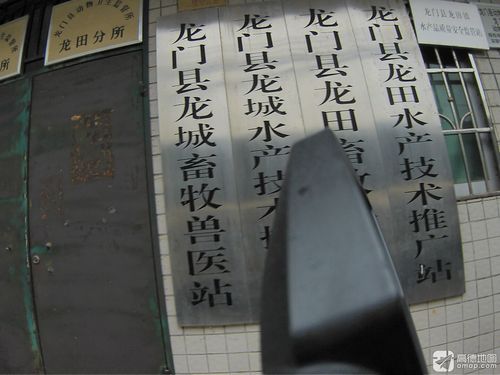 所
龙门县动物卫生监督所
龙田分所
龙门县龙城畜牧兽医站
龙门县龙城水产技
龙门县龙田畜牧
龙门县龙田水产技术推广站
龙门县龙田镇
水产品质量安全监管站
高德地图
amap.com